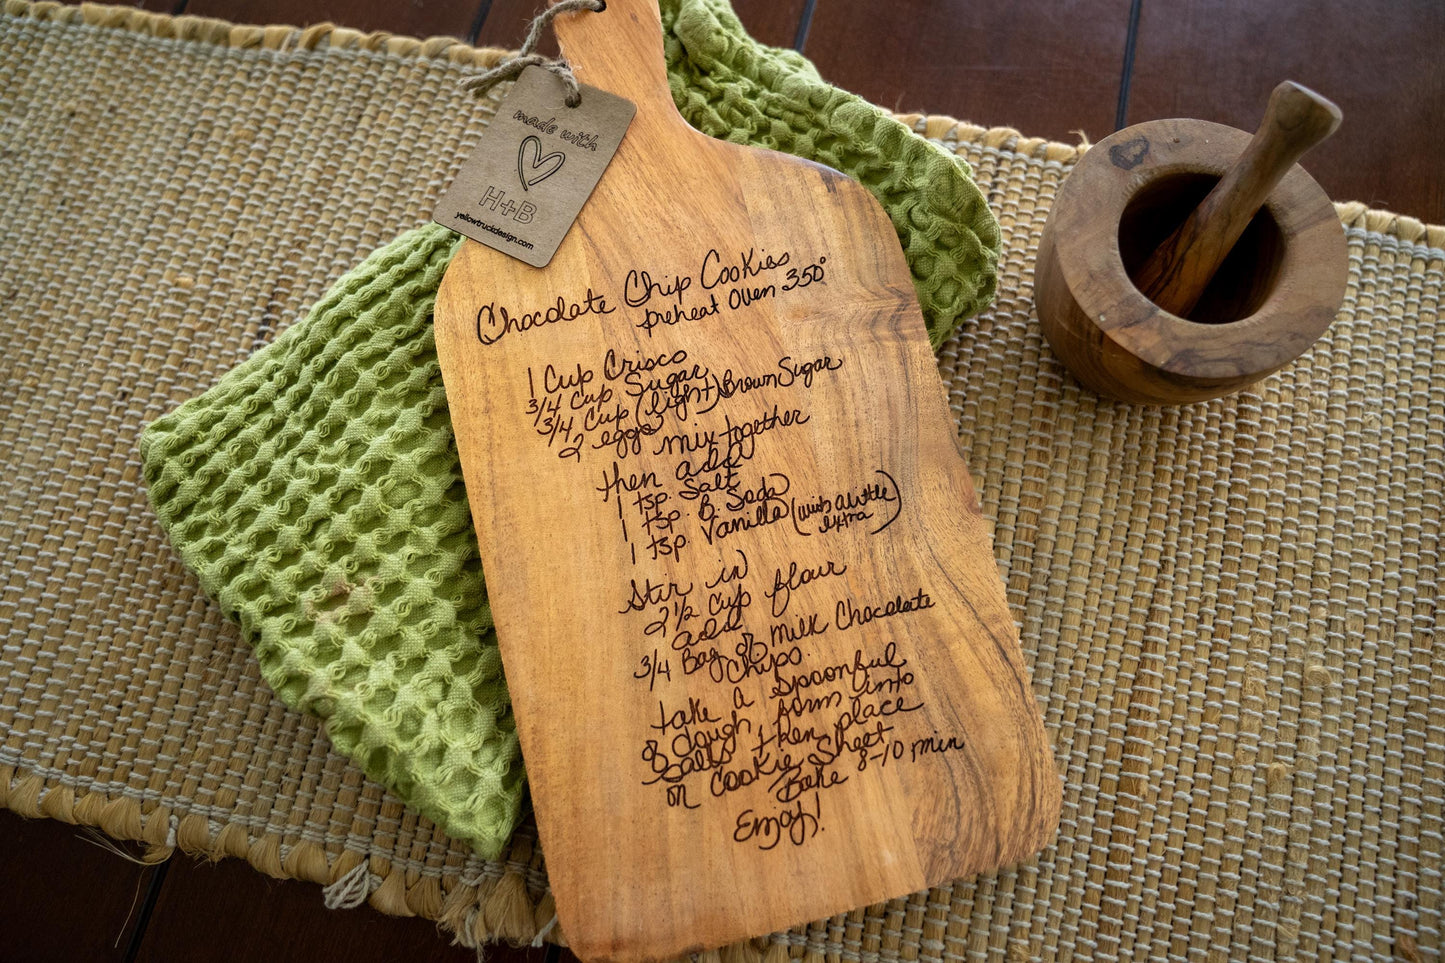 made with
H+B
yellowtruckdesign.com
Chocolate Chip Cookies
preheat Oven 350°
1 Cup Crisco
3/4 Cup Sugar
3/4 Cup (light) Brown Sugar
2 eggs mix together
then add
1 tsp. Salt
1 tsp. B. Soda
1 tsp. Vanilla (with a little
extra)
Stir in
2 1/2 Cup flour
add
3/4 Bag of Milk Chocolate
Chips.
take a spoonful
of dough form into
balls then place
on Cookie Sheet
Bake 8-10 min
Enjoy!